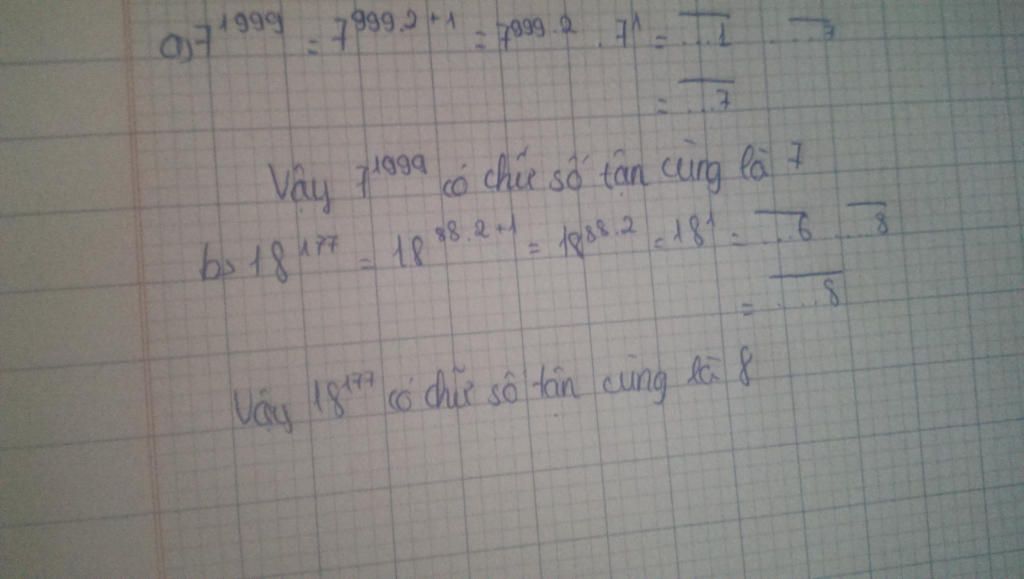 a) 7^1999 = 7^999.2+1 = 7^999.2 . 7^1 = ...1 ...7
= ...7
Vậy 7^1999 có chữ số tận cùng là 7
b) 18^177 = 18^88.2+1 = 18^88.2 = 18^1 = ...6 ...8
= ...8
Vậy 18^177 có chữ số tận cùng là 8